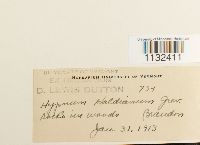 1132411
HERBARIUM UNIVERSITY OF VERMONT
D. LEWIS DUTTON 734
Hypnum Haldanianum Grev.
in woods Brandon
Jan 31, 1913